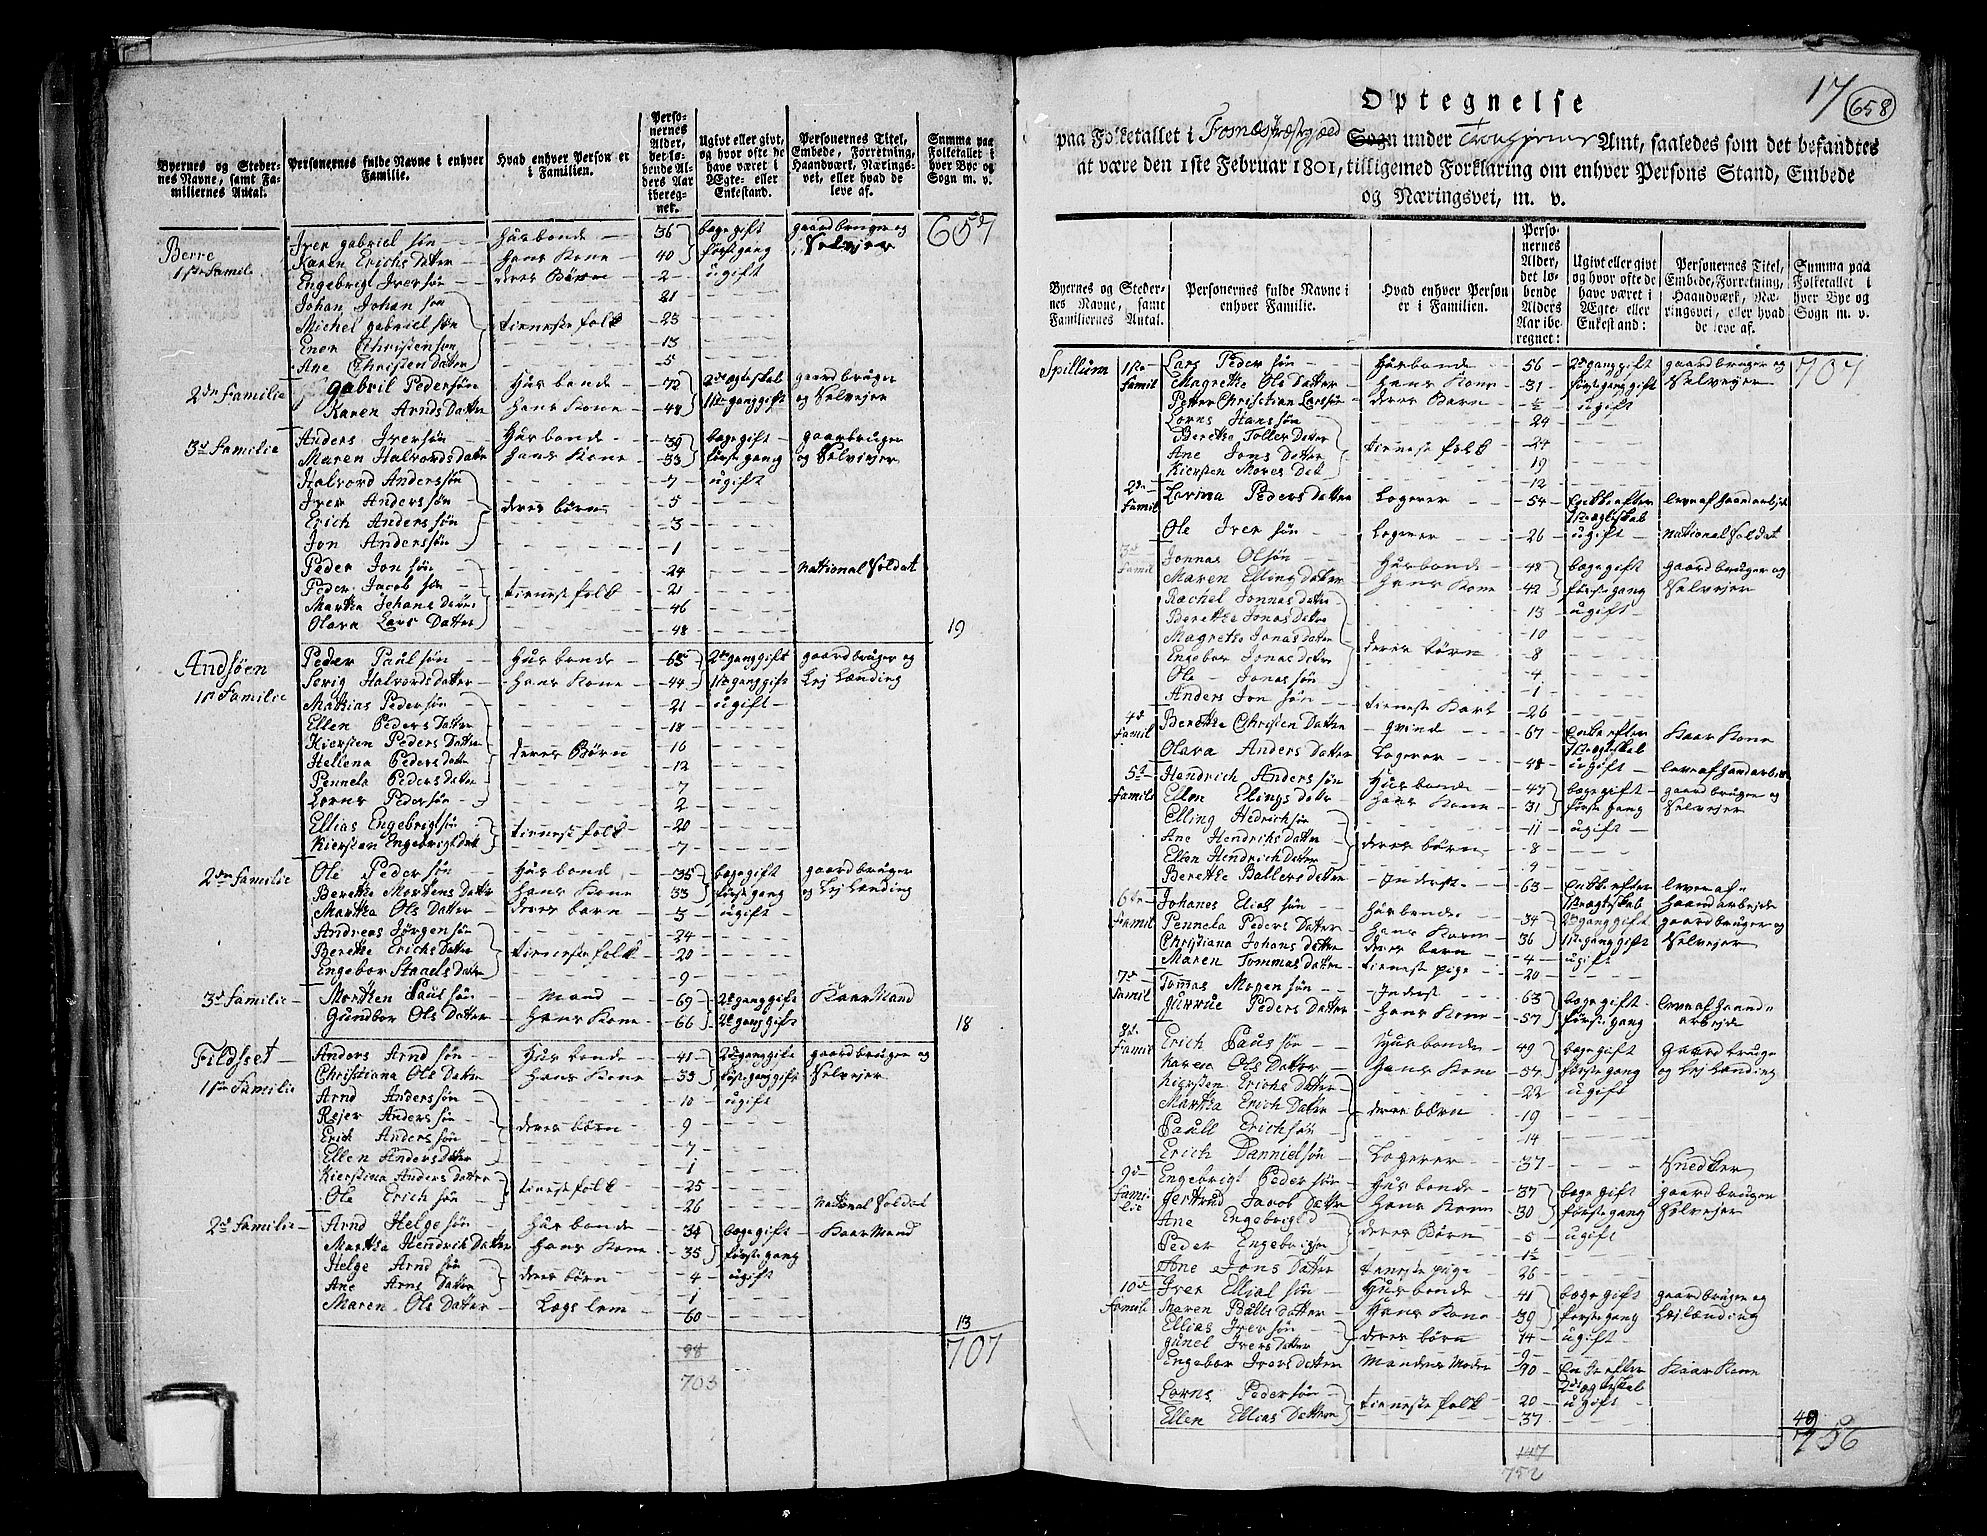 Byernes og Steder-
nes Navne, samt Fa-
miliernes Antal.
Personernes fulde Navne i enhver
Familie.
Hvad enhver Person er
i Familien.
Perso-
nernes
Alder,
det lø-
bende Al-
ders Aar
ibereg-
net.
Ugivt eller givt,
og hvor ofte de
have været i
Ægte- eller
Enkestand.
Personernes Titel,
Embede, Forretning,
Haandværk, Nærings-
vei, eller hvad de
leve af.
Summa paa
Folketallet i
hver Bye og
Sogn m. v.
Berre Iver gabriel søn Husbonde 36 bege gift gaardbruger og 657
1ste Famili Karen Erichs Datter hans Kone 40 første gang Selvejer
Engebrigt Iversøn deres Børn 2 ugift
Johan Johan søn 21
Michel gabriel søn tienestefolk 23
Ener Christensøn 13
Ane Christens Datter 5
2den Familie gabril Pedersøn Husbonde 72 2det ægteskab gaardbruger
Karen Arnds Datter hans Kone 48 1ste gang gift og Selvejer
3de Familie Anders Iversøn Husbonde 39 bege gift gaarbruger
Maren Halvords datter hans Kone 33 første gang og Selvejer
Halvord Anderssøn 7 ugift
Iver Anderssøn deres børn 5
Erich Anders søn 3
Jon Anderssøn 1
Peder Jon søn 24 National Soldat
Peder Jacob søn tieneste folk 21
Martha Johans datter 46
Olava Lars Datter 48 19
Andsøen Peder Paul søn Husbonde 65 2den gang gift gaardbruger og
1ste Familie Serig Halvords datter hans Kone 44 1ste gang gift Lej Lænding
Mathias Peder søn 21 ugift
Ellen Peders Datter 18
Kiersten Peders Datter deres Børn 16
Hellena Peders datter 12
Pennela Peders datter 7
Lorns Peder søn 2
Ellias Engebrigtsøn tieneste folk 20
Kiersten Engebrigts dat 7
2den Familie Ole Peder søn Husbonde 35 bege gift gaardbruger
Berethe Mortens Datter hans Kone 33 første gang og Lej Lænding
Martha Ols Datter deres barn 3 ugift
Andreas Jørgen søn 24
Berethe Erichs Datter tieneste folk 20
Engebor Staaels datter 9
3de Familie Morthen Paul søn Mand 69 2de gang gift Kaar Mand
Gundbor Ols Datter hans Kone 66 2de gang gift 18
Fildset Anders Arnd søn Husbonde 41 2den gang gift gaardbruger og
1ste Familie Christiana Ols Datter hans Kone 33 første gang gift Selvejer
Arnd Anderssøn 10 ugift
Rejer Anders søn deres børn 9
Erich Anders søn 7
Ellen Anders datter 1
Kierstina Anders datter tieneste folk 25
Ole Erich søn 26 National Soldat
2de Familie Arnd Helge søn Husbonde 34 bege gift Kaar Mand
Martha Hendrich Datter hans Kone 35 første gang
Helge Arnd søn deres børn 4 ugift
Ane Arns Datter 1
Maren Ols Datter Lægslem 60 13
98 707
703
17 658
Optegnelse
paa Folketallet i Fosnes Præstegjeld Sogn under Tronhjems Amt, saaledes som det befandtes
at være den 1ste Februar 1801, tilligemed Forklaring om enhver Persons Stand, Embede
og Næringsvei, m. v.
Byernes og Steder-
nes Navne, samt
Familiernes Antal.
Personernes fulde Navne i
enhver Familie.
Hvad enhver Person
er i Familien.
Perso-
nernes
Alder,
det lø-
bende
Alders
Aar ibe-
regnet:
Ugivt eller givt
og hvor ofte de
have været i
Ægte- eller
Enkestand:
Personernes Titel,
Embede, Forretning,
Haandværk, Næ-
ringsvei, eller hvad
de leve af.
Summa paa
Folketallet i
hver Bye og
Sogn m. v.
Spillum 1ste Famil Lars Peder søn Husbonde 56 2de gang gift gaardbruger og 707
Magrethe Ols Datter hans Kone 31 første gang gift Selvejer
Petter Christian Larssøn deres Barn ½ ugift
Lorns Hans søn 24
Berethe Toller Datter tieneste folk 24
Ane Jons Datter 19
Kiersten Mores Dat 12
2den Famil Lerina Peders datter Logerer 54 Enkke efter 1ste ægteskab leve af haandarbejde
Ole Iver søn Logerer 26 ugift National Soldat
3de Famil Jonnas Olsøn Husbonde 48 bege gift gaardbruger og
Maren Elling datter hans Kone 42 første gang Selvejer
Rachel Jonnas datter 13 ugift
Berethe Jonas datter 10
Magrethe Jonas datter deres børn 8
Engebor Jonas datter 4
Ole Jonas søn 1
Anders Jon søn tieneste Karl 26
4de Famil Berethe Christen Datter qvinde 67 Enke efter 1ste ægteskab Kaar Kone
Olava Anders datter Logerer 48 ugift leve af haandarbejde
5te Famili Hendrich Anders søn Husbonde 47 bege gift gaardbruger og
Ellen Elings datr hans Kone 31 første gang Selvejer
Elling Hedrich søn 11 ugift
Ane Hendrichs datter deres børn 8
Ellen Hendrich Datter 9
Berethe Ballers datter Inderst 63 Enkke efter 1ste ægteskab leve af haandarbejde
6te Famil Johanes Elias søn husbonde 34 2de gang gift gaardbruger og
Pennela Peders Datter hans Kone 36 1ste gang gift Selvejer
Christiana Johans datter deres barn 4 ugift
Maren Tommas datter tieneste pige 20
7de Famil Tomas Mogensøn Inderst 63 bege gift leve af haand
gurrue Peders Datter hans Kone 57 første gang arbejde
8de Famil Erich Paulssøn Husbonde 49 bege gift gaardbruge
Karen Ols Datter hans Kone 57 første gang og Lej Lænding
Kiersten Erichs Datter 22 ugift
Martha Erich Datter deres børn 19
Paull Erich søn 14
Erich Danniel søn Logerer 37 Snedker
9de Familie Engebrigt Peder søn Husbonde 37 bege gift gaardbruger
Jertrud Jacob Datter hans Kone 30 første gang Selvejer
Ane Engebrigt D deres Børn 5 ugift
Peder Engebrigsøn 1½
Ane Jons Datter tieneste pige 26
10de Famili Iver Ellias søn Husbonde 41 bege gift gaardbruger og
Maren Pålls Datter Hans Kone 39 første gang Lejlænding
Ellias Iver søn deres børn 14 ugift
gunel Ivers datter 9
Engebor Ivers datter Mandens Moder 70 Enke efter 2det ægteskab Kaar Kone
Lorns Peder søn tieneste folk 20 ugift
Ellen Ellias Datter 37
49
147 756
752